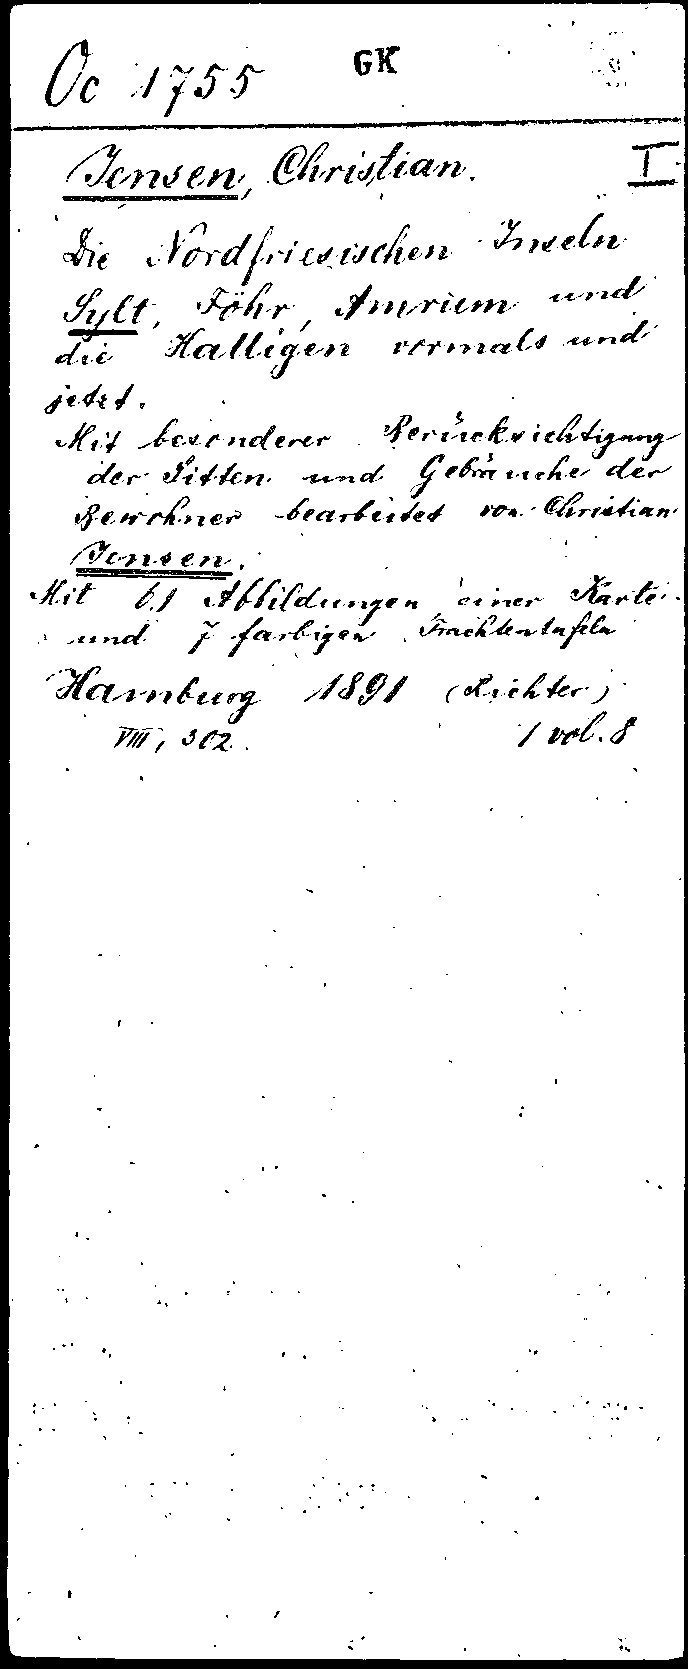 Oc 1755 GK
Jensen, Christian. I
Die Nordfriesischen Inseln
Sylt, Föhr, Amrum und
die Halligen vormals und
jetzt.
Mit besonderer Berücksichtigung
der Sitten und Gebräuche der
Bewohner bearbeitet von Christian
Jensen.
Mit 61 Abbildungen einer Karte
und 7 farbigen Trachtentafeln
Hamburg 1891 (Richter)
VIII, 302. 1 vol. 8